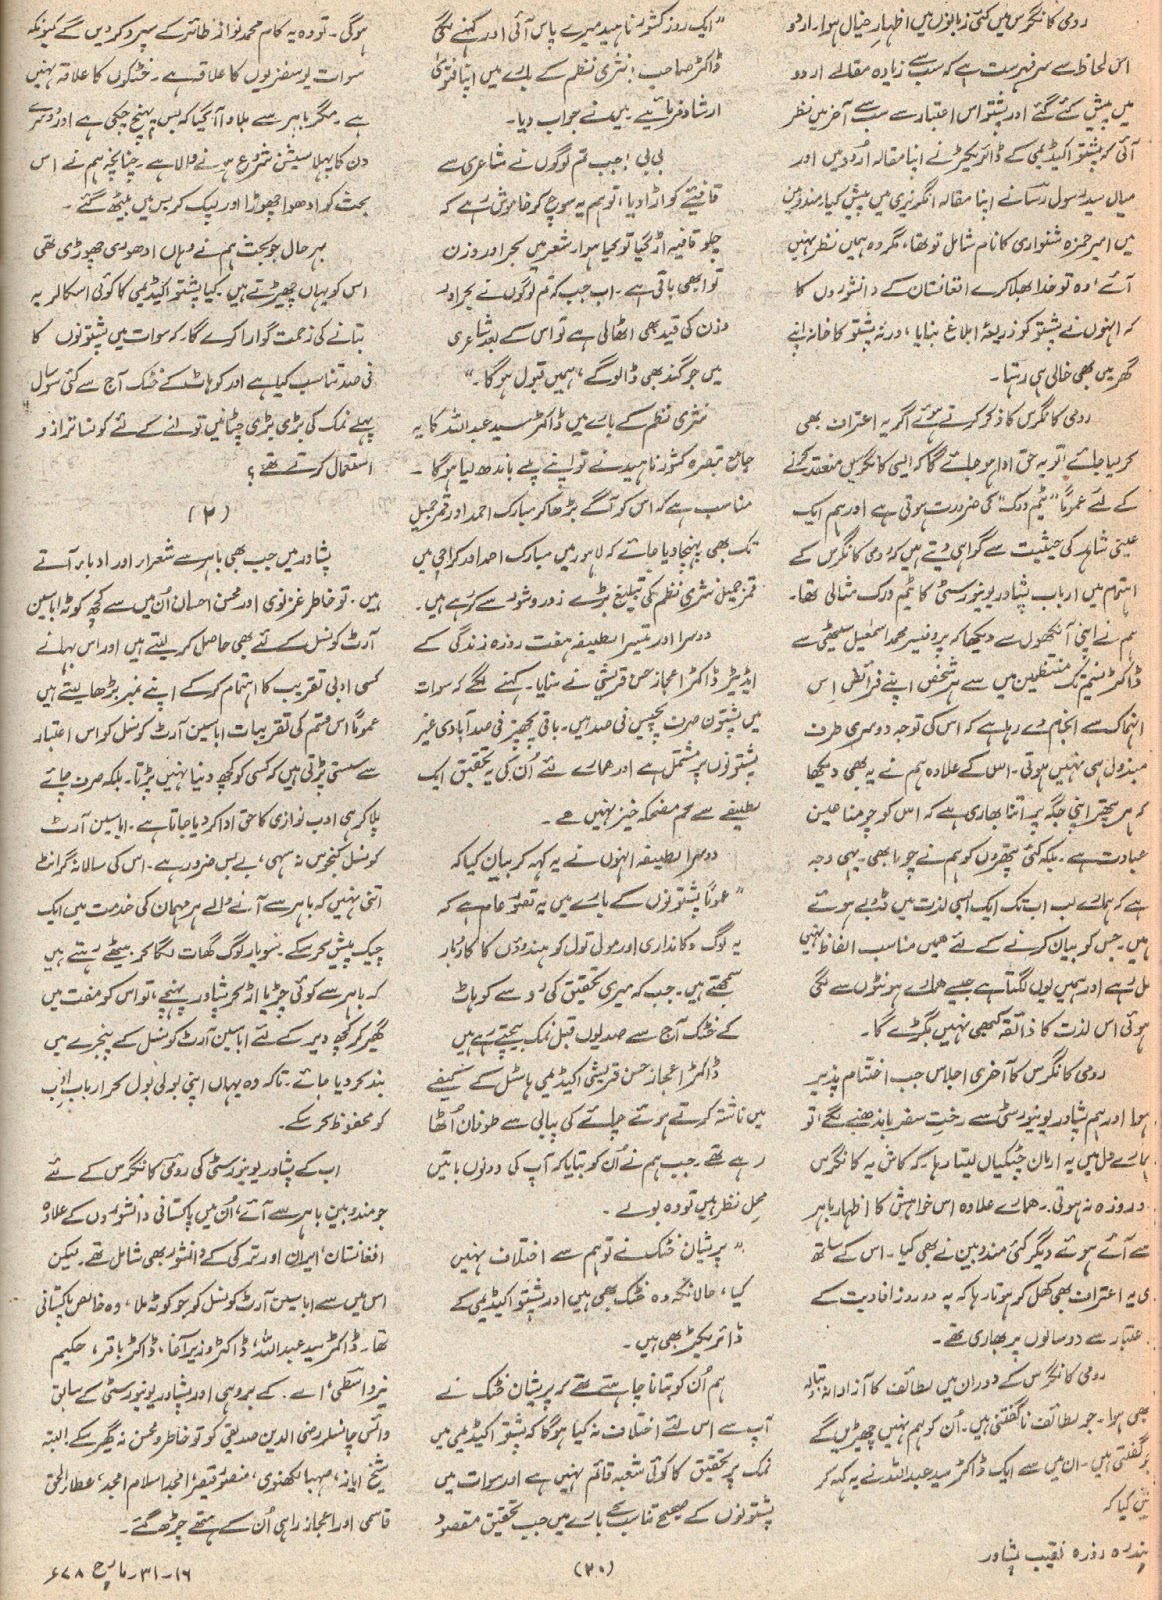 رومی کانگرس میں کئی زبانوں میں اظہارِ خیال ہوا۔ اردو
اس لحاظ سے سرفہرست ہے کہ سب سے زیادہ مقالے اردو
میں پیش کئے گئے اور پشتو اس اعتبار سے سب سے آخر میں نظر
آئی کہ پشتو اکیڈیمی کے ڈائریکٹر نے اپنا مقالہ اُردو میں اور
میاں سید رسول رسا نے اپنا مقالہ انگریزی میں پیش کیا۔ مندوبین
میں امیر حمزہ شنواری کا نام شامل تو تھا، مگر وہ ہمیں نظر نہیں
آئے، وہ تو خدا بھلا کرے افغانستان کے دانشوروں کا
کہ انہوں نے پشتو کو ذریعۂ ابلاغ بنایا، ورنہ پشتو کا خانہ اپنے
گھر میں بھی خالی ہی رہتا۔
رومی کانگرس کا ذکر کرتے ہوئے اگر یہ اعتراف بھی
کر لیا جائے تو یہ حق ادا ہو جائے گا کہ ایسی کانگرسیں منعقد کرنے
کے لئے عموماً "ٹیم ورک" کی ضرورت ہوتی ہے اور ہم ایک
عینی شاہد کی حیثیت سے گواہی دیتے ہیں کہ رومی کانگرس کے
اہتمام میں ارباب پشاور یونیورسٹی کا ٹیم ورک مثالی تھا۔
ہم نے اپنی آنکھوں سے دیکھا کہ پروفیسر محمد اسمٰعیل سیٹھی سے
ڈاکٹر تسنیم تک منتظمین میں سے ہر شخص اپنے فرائض اِس
انہماک سے انجام دے رہا ہے کہ اس کی توجہ دوسری طرف
مبذول ہی نہیں ہوتی۔ اس کے علاوہ ہم نے یہ بھی دیکھا
کہ ہر پتھر اپنی جگہ پر اتنا بھاری ہے کہ اس کو چومنا عین
عبادت ہے۔ بلکہ کئی پتھروں کو ہم نے چوما بھی۔ یہی وجہ
ہے کہ ہمارے لب اب تک ایک ایسی لذت میں ڈوبے ہوئے
ہیں۔ جس کو بیان کرنے کے لئے ہمیں مناسب الفاظ نہیں
مل رہے اور ہمیں یوں لگتا ہے جیسے ہمارے ہونٹوں سے لگی
ہوئی اس لذت کا ذائقہ کبھی نہیں بگڑے گا۔
رومی کانگرس کا آخری اجلاس جب اختتام پذیر
ہوا اور ہم پشاور یونیورسٹی سے رختِ سفر باندھنے لگے، تو
ہمارے دل میں یہ ارمان چٹکیاں لیتا رہا۔ کہ کاش یہ کانگرس
دو روزہ نہ ہوتی۔ ہمارے علاوہ اس خواہش کا اظہار باہر
سے آئے ہوئے دیگر کئی مندوبین نے بھی کیا۔ اس کے ساتھ
ہی یہ اعتراف بھی کھل کر ہوتا رہا کہ یہ دو روز افادیت کے
اعتبار سے دو سالوں پر بھاری تھے۔
رومی کانگرس کے دوران میں لطائف کا آزادانہ تبادلہ
بھی ہوا۔ جو لطائف ناگفتنی ہیں۔ اُن کو ہم نہیں چھیڑیں گے
جو گفتنی ہیں۔ ان میں سے ایک ڈاکٹر سید عبداللہ نے یہ کہہ کر
پیش کیا کہ
"ایک روز کشور ناہید میرے پاس آئی اور کہنے لگی
ڈاکٹر صاحب! نثری نظم کے بارے میں اپنا فتویٰ
ارشاد فرمائیے۔ میں نے جواب دیا۔
بی بی! جب تم لوگوں نے شاعری سے
قافیئے کو اڑا دیا، تو ہم یہ سوچ کر خاموش رہے کہ
چلو قافیہ اڑ گیا تو کیا ہوا، شعر میں بحر اور وزن
تو ابھی باقی ہے۔ اب جب کہ تم لوگوں نے بحر اور
وزن کی قید بھی اٹھا لی ہے تو اس کے بعد شاعری
میں جو گند بھی ڈالو گے، ہمیں قبول ہو گا۔"
نثری نظم کے بارے میں ڈاکٹر سید عبداللہ کا یہ
جامع تبصرہ کشور ناہید نے تو اپنے پلے باندھ لیا ہو گا۔
مناسب ہے کہ اس کو آگے بڑھا کر مبارک احمد اور قمر جمیل
تک بھی پہنچا دیا جائے کہ لاہور میں مبارک احمد اور کراچی میں
قمر جمیل نثری نظم کی تبلیغ بڑے زور و شور سے کر رہے ہیں۔
دوسرا اور تیسرا لطیفہ ہفت روزہ زندگی کے
ایڈیٹر ڈاکٹر اعجاز حسن قریشی نے بنایا۔ کہنے لگے کہ سوات
میں پشتون صرف پچیس فی صد ہیں۔ باقی پچھتر فی صد آبادی غیر
پشتونوں پر مشتمل ہے اور ہمارے لئے اُن کی یہ تحقیق ایک
لطیفے سے کم مضحکہ خیز نہیں ہے۔
دوسرا لطیفہ انہوں نے یہ کہہ کر بیان کیا کہ
"عموماً پشتونوں کے بارے میں یہ تصور عام ہے کہ
یہ لوگ دکانداری اور مول تول کو ہندوؤں کا کاروبار
سمجھتے ہیں۔ جب کہ میری تحقیق کی رو سے کوہاٹ
کے خٹک آج سے صدیوں قبل نمک بیچتے رہے ہیں
ڈاکٹر اعجاز حسن قریشی اکیڈیمی ہاسٹل کے کیفے
میں ناشتہ کرتے ہوئے چائے کی پیالی سے طوفان اُٹھا
رہے تھے۔ جب ہم نے اُن کو بتایا کہ آپ کی دونوں باتیں
محلِ نظر ہیں تو وہ بولے۔
"پریشان خٹک نے تو ہم سے اختلاف نہیں
کیا، حالانکہ وہ خٹک بھی ہیں اور پشتو اکیڈیمی کے
ڈائریکٹر بھی ہیں۔
ہم اُن کو بتانا چاہتے تھے کہ پریشان خٹک نے
آپ سے اس لئے اختلاف نہ کیا ہو گا کہ پشتو اکیڈیمی میں
نمک پر تحقیق کا کوئی شعبہ قائم نہیں ہے اور سوات میں
پشتونوں کے صحیح تناسب کے بارے میں جب تحقیق مقصود
ہو گی۔ تو وہ یہ کام محمد نواز طائر کے سپرد کر دیں گے کیونکہ
سوات یوسفزیوں کا علاقہ ہے۔ خٹکوں کا علاقہ نہیں
ہے۔ مگر باہر سے بلاوا آ گیا کہ بس پہنچ چکی ہے اور دوسرے
دن کا پہلا سیشن شروع ہونے والا ہے۔ چنانچہ ہم نے اس
بحث کو ادھورا چھوڑا اور لپک کر بس میں بیٹھ گئے۔
بہر حال جو بحث ہم نے وہاں ادھوری چھوڑی تھی
اس کو یہاں چھیڑتے ہیں۔ کیا پشتو اکیڈیمی کا کوئی اسکالر یہ
بتانے کی زحمت گوارا کرے گا۔ کہ سوات میں پشتونوں کا
فی صد تناسب کیا ہے اور کوہاٹ کے خٹک آج سے کئی سو سال
پہلے نمک کی بڑی بڑی چٹانیں تولنے کے لئے کونسا ترازو
استعمال کرتے تھے؟
(۲)
پشاور میں جب بھی باہر سے شعراء اور ادباء آتے
ہیں۔ تو خاطر غزنوی اور محسن احسان اُن میں سے کچھ کوٹہ اباسین
آرٹ کونسل کے لئے بھی حاصل کر لیتے ہیں اور اس بہانے
کسی ادبی تقریب کا اہتمام کر کے اپنے نمبر بڑھا لیتے ہیں
عموماً اس قسم کی تقریبات اباسین آرٹ کونسل کو اس اعتبار
سے سستی پڑتی ہیں کہ کسی کو کچھ دینا نہیں پڑتا۔ بلکہ صرف چائے
پلا کر ہی ادب نوازی کا حق ادا کر دیا جاتا ہے۔ اباسین آرٹ
کونسل کنجوس نہ سہی، بے بس ضرور ہے۔ اس کی سالانہ گرانٹ
اتنی نہیں کہ باہر سے آنے والے ہر مہمان کی خدمت میں ایک
چیک پیش کر سکے۔ سو یار لوگ گھات لگا کر بیٹھے رہتے ہیں
کہ باہر سے کوئی چڑیا اڑ کر پشاور پہنچے، تو اس کو مفت میں
گھیر کر کچھ دیر کے لئے اباسین آرٹ کونسل کے پنجرے میں
بند کر دیا جائے۔ تاکہ وہ یہاں اپنی بولی بول کر اربابِ ادب
کو محفوظ کر سکے۔
اب کے پشاور یونیورسٹی کی رومی کانگرس کے لئے
جو مندوبین باہر سے آئے، اُن میں پاکستانی دانشوروں کے علاوہ
افغانستان، ایران اور ترکی کے دانشور بھی شامل تھے۔ لیکن
اس میں سے اباسین آرٹ کونسل کو جو کوٹہ ملا، وہ خالص پاکستانی
تھا۔ ڈاکٹر سید عبداللہ، ڈاکٹر وزیر آغا، ڈاکٹر باقر، حکیم
نیر واسطی، اے۔ کے بروہی اور پشاور یونیورسٹی کے سابق
وائس چانسلر رضی الدین صدیقی کو تو خاطر و محسن نہ گھیر سکے۔ البتہ
شیخ ایاز، صہبا لکھنوی، منصور قیصر، امجد اسلام امجد، عطا الحق
قاسمی اور اعجاز راہی اُن کے ہتھے چڑھ گئے۔
پندرہ روزہ نقیب پشاور
(۲۰)
۱۶۔۳۱۔ مارچ ۷۸ء